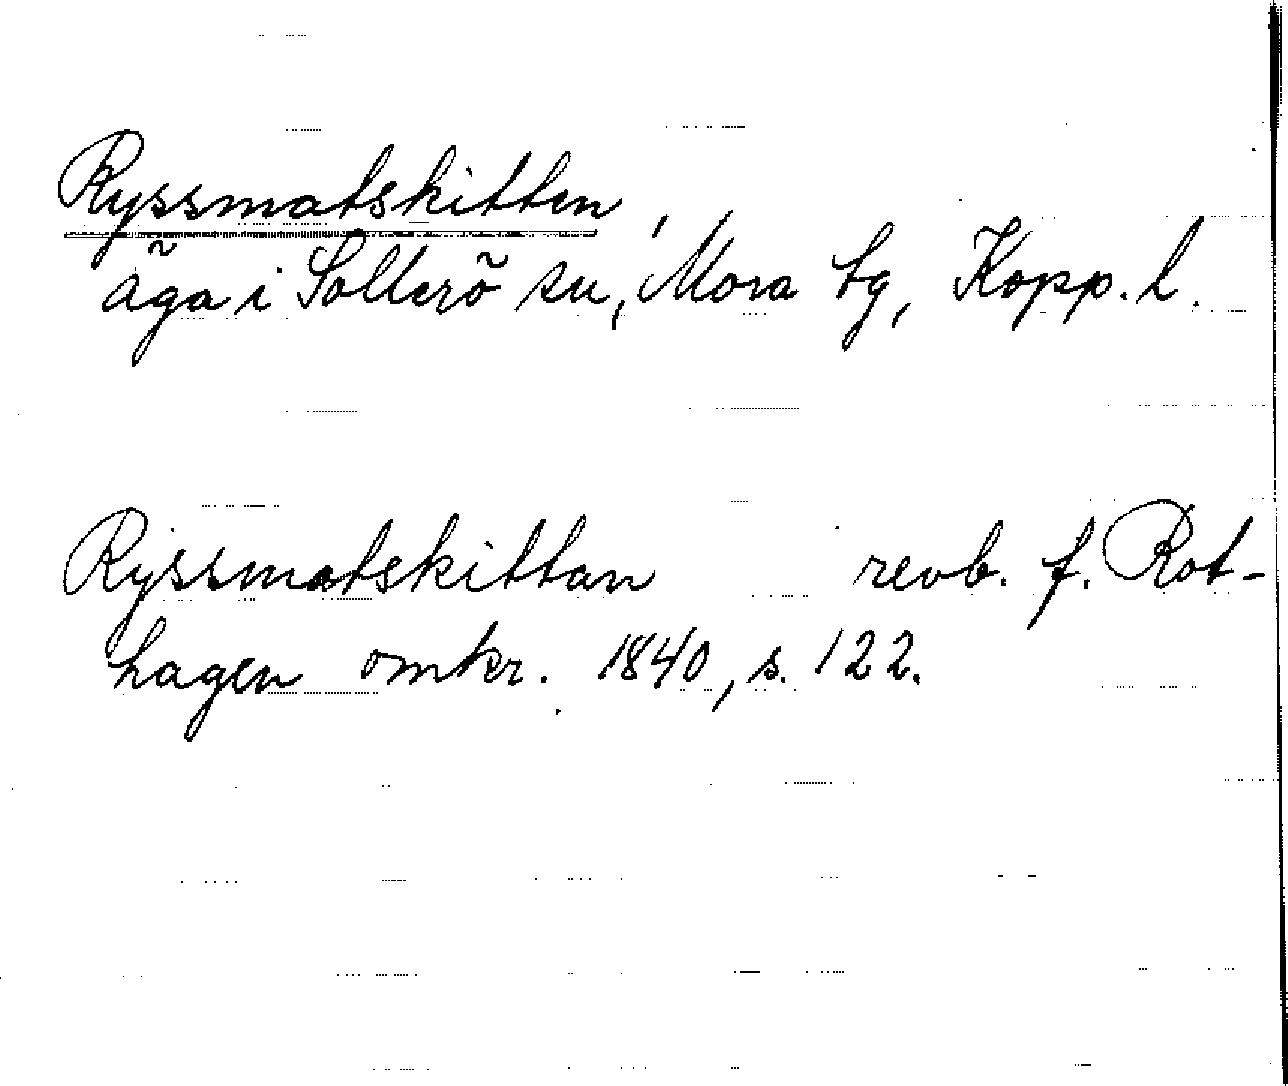 Ryssmatskitten,
äga i Sollerö sn, Mora tg, Kopp. l.
Ryssmatskittan revb. f. Rot-
hagen omkr. 1840, s. 122.